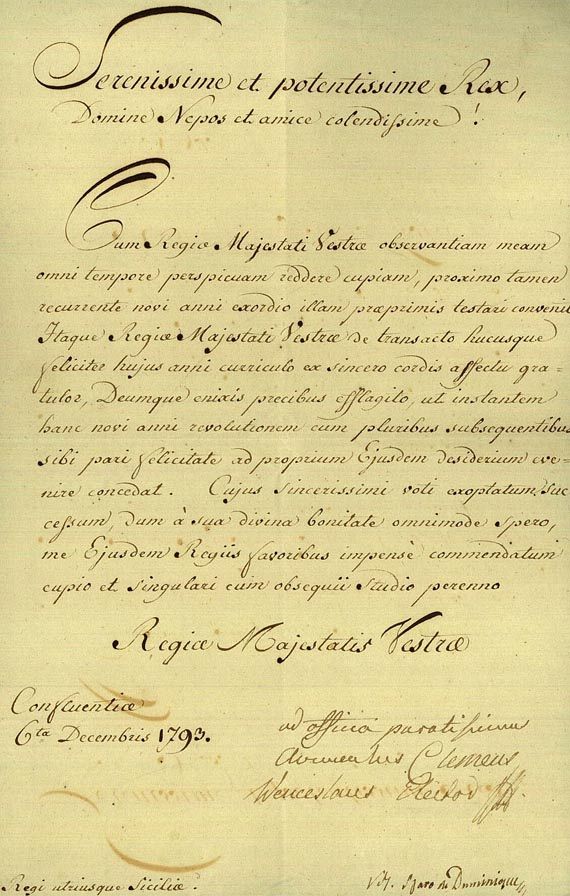 Serenissime et potentissime Rex,
Domine Nepos et amice colendissime!
Cum Regiæ Majestati Vestræ observantiam meam
omni tempore perspicuam reddere cupiam, proximo tamen
recurrente novi anni exordio illam præprimis testari convenit
Itaque Regiæ Majestati Vestræ de transacto hucusque
feliciter hujus anni curriculo ex sincero cordis affectu gra=
tulor, Deumque enixis precibus efflagito, ut instantem
hanc novi anni revolutionem cum pluribus subsequentibus
sibi pari felicitate ad proprium Ejusdem desiderium eve-
nire concedat. Cujus sincerissimi voti exoptatum suc
cessum, dum à sua divina bonitate omnimode spero,
me Ejusdem Regiis favoribus impensè commendatum
cupio et singulari cum obsequii studio perenno
Regiæ Majestatis Vestræ
Confluentiæ
6ta Decembris 1793.
ad officia paratissimus
Avunculus Clemens
Wenceslaus Elector
Regi utriusque Siciliæ.
Vdt.